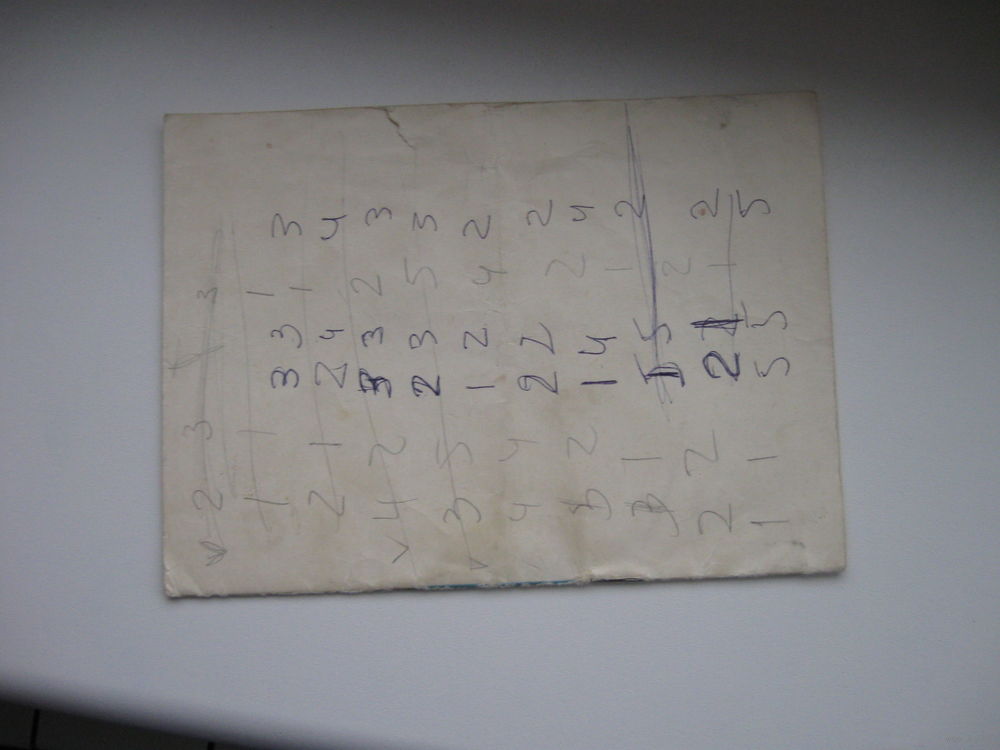 v 2 3 3
1 1 3 3 1 3
2 1 2 4 1 4
v 4 2 3 3 2 3
v 3 5 2 3 5 3
4 4 1 2 4 2
2 2 2 2 2
1 1 4 1 4
2 2 5 2 2
1 1 2 1 2
5 5 5